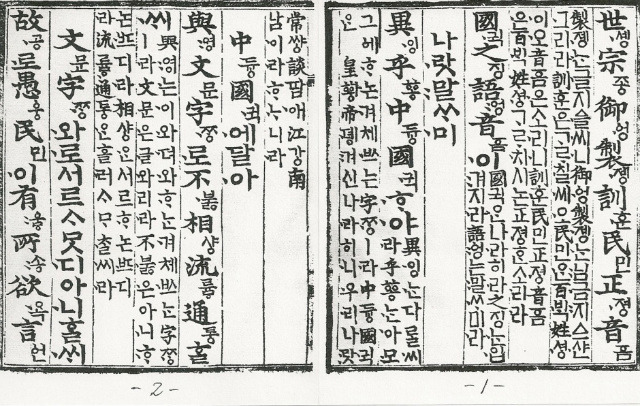 世솅宗종御엉製졩訓훈民민正졍音ᅙᅳᆷ
製졩는글지ᅀᅳᆯ씨니御엉製졩는님금지ᅀᅳ샨
그리라訓훈은ᄀᆞᄅᆞ칠씨오民민ᄋᆞᆫ百ᄇᆡᆨ姓셩
이오音ᅙᅳᆷ은소리니訓훈民민正졍音ᅙᅳᆷ
은百ᄇᆡᆨ姓셩ᄀᆞᄅᆞ치시논正졍ᄒᆞᆫ소리라
國귁之징語ᅌᅥᆼ音ᅙᅳᆷ이
國귁ᄋᆞᆫ나라히라之징는입
겨지라語ᅌᅥᆼ는말ᄊᆞ미라
나랏말ᄊᆞ미
異잉乎ᅘᅩᆼ中듀ᇰ國귁ᄒᆞ야
異잉는다ᄅᆞᆯ씨
라乎ᅘᅩᆼ는아모
그ᅌᅦᄒᆞ논겨체ᄡᅳ는字ᄍᆞᆼㅣ라中듀ᇰ國귁
ᄋᆞᆫ皇ᅘᅪᇰ帝뎽겨신나라히니우리나랏
常쌰ᇰ談땀애江가ᇰ南
남이라ᄒᆞᄂᆞ니라
中듀ᇰ國귁에달아
與영文문字ᄍᆞᆼ로不부ᇙ相샤ᇰ流류ᇢ通토ᇰᄒᆞᆯ
ᄊᆡ
與영는이와뎌와ᄒᆞ는겨체ᄡᅳ는字ᄍᆞᆼ
ㅣ라文문은글와리라不부ᇙ은아니ᄒᆞ
논ᄠᅳ디라相샤ᇰᄋᆞᆫ서르ᄒᆞ논ᄠᅳ디
라流류ᇢ通토ᇰᄋᆞᆫ흘러ᄉᆞᄆᆞᄎᆞᆯ씨라
文문字ᄍᆞᆼ와로서르ᄉᆞᄆᆞᆺ디아니ᄒᆞᆯᄊᆡ
故공로愚ᅌᅮᆼ民민이有우ᇢ所송欲욕言언
-1-
-2-